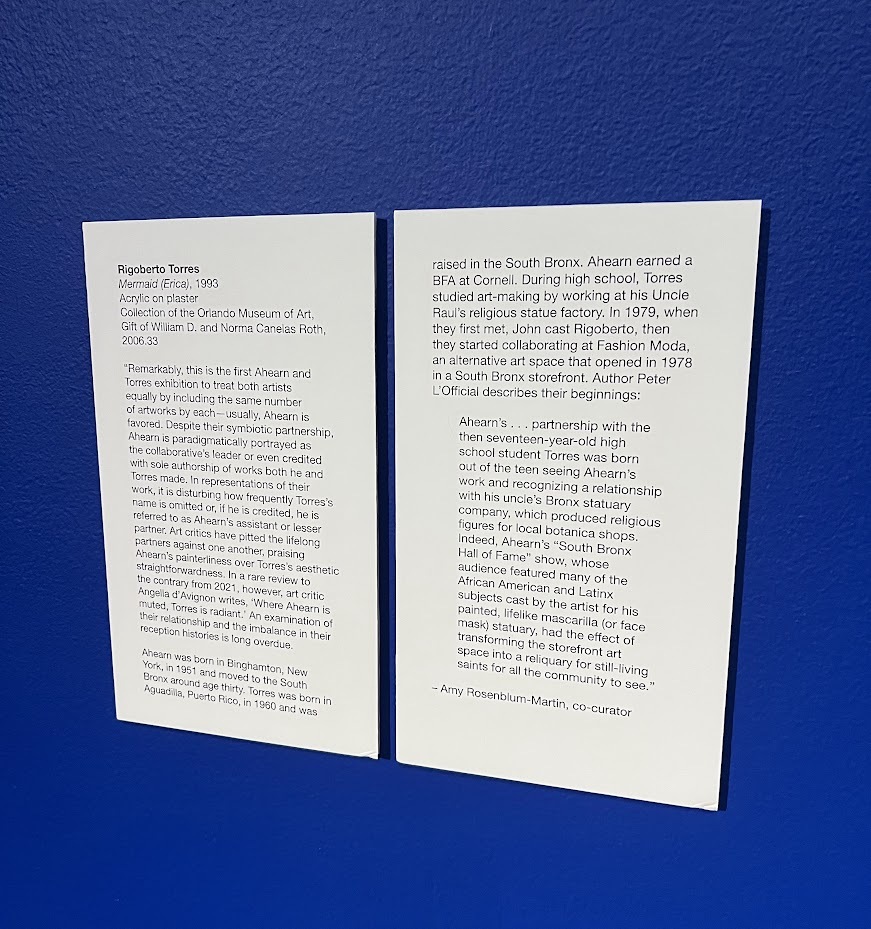 Rigoberto Torres
Mermaid (Erica), 1993
Acrylic on plaster
Collection of the Orlando Museum of Art,
Gift of William D. and Norma Canelas Roth,
2006.33
“Remarkably, this is the first Ahearn and
Torres exhibition to treat both artists
equally by including the same number
of artworks by each—usually, Ahearn is
favored. Despite their symbiotic partnership,
Ahearn is paradigmatically portrayed as
the collaborative’s leader or even credited
with sole authorship of works both he and
Torres made. In representations of their
work, it is disturbing how frequently Torres’s
name is omitted or, if he is credited, he is
referred to as Ahearn’s assistant or lesser
partner. Art critics have pitted the lifelong
partners against one another, praising
Ahearn’s painterliness over Torres’s aesthetic
straightforwardness. In a rare review to
the contrary from 2021, however, art critic
Angella d’Avignon writes, ‘Where Ahearn is
muted, Torres is radiant.’ An examination of
their relationship and the imbalance in their
reception histories is long overdue.
Ahearn was born in Binghamton, New
York, in 1951 and moved to the South
Bronx around age thirty. Torres was born in
Aguadilla, Puerto Rico, in 1960 and was
raised in the South Bronx. Ahearn earned a
BFA at Cornell. During high school, Torres
studied art-making by working at his Uncle
Raul’s religious statue factory. In 1979, when
they first met, John cast Rigoberto, then
they started collaborating at Fashion Moda,
an alternative art space that opened in 1978
in a South Bronx storefront. Author Peter
L’Official describes their beginnings:
Ahearn’s . . . partnership with the
then seventeen-year-old high
school student Torres was born
out of the teen seeing Ahearn’s
work and recognizing a relationship
with his uncle’s Bronx statuary
company, which produced religious
figures for local botanica shops.
Indeed, Ahearn’s “South Bronx
Hall of Fame” show, whose
audience featured many of the
African American and Latinx
subjects cast by the artist for his
painted, lifelike mascarilla (or face
mask) statuary, had the effect of
transforming the storefront art
space into a reliquary for still-living
saints for all the community to see.”
– Amy Rosenblum-Martin, co-curator